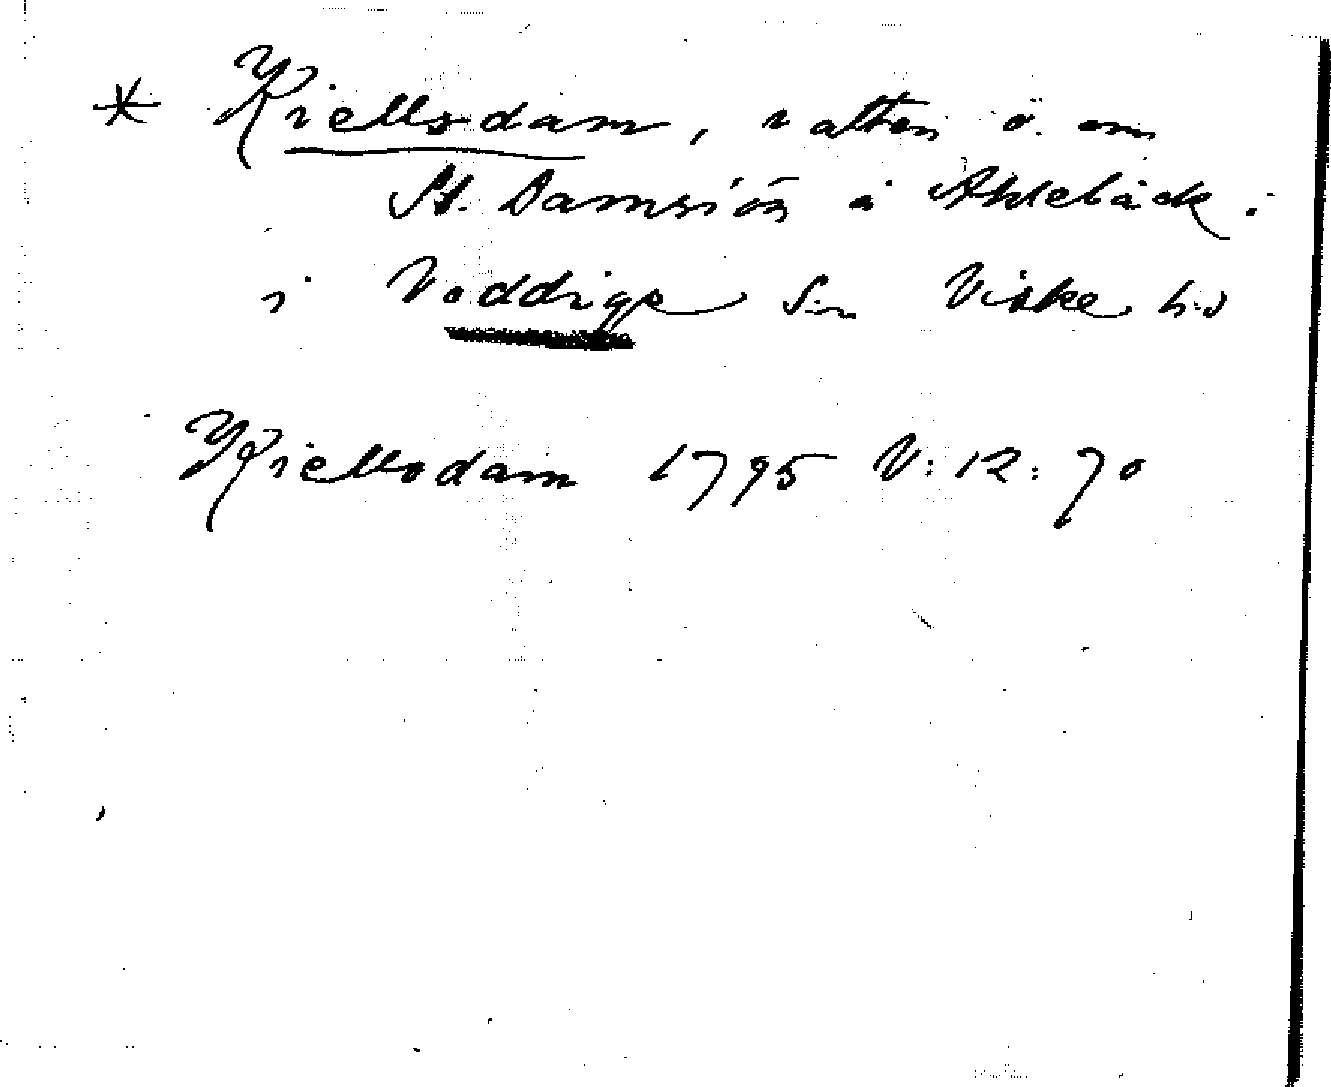 * Kiellsdam, vatten ö. om
St. Damsiön å Ahlebäck.
i Veddige Sn Viske hd
Kiellsdam 1795 V:12:70